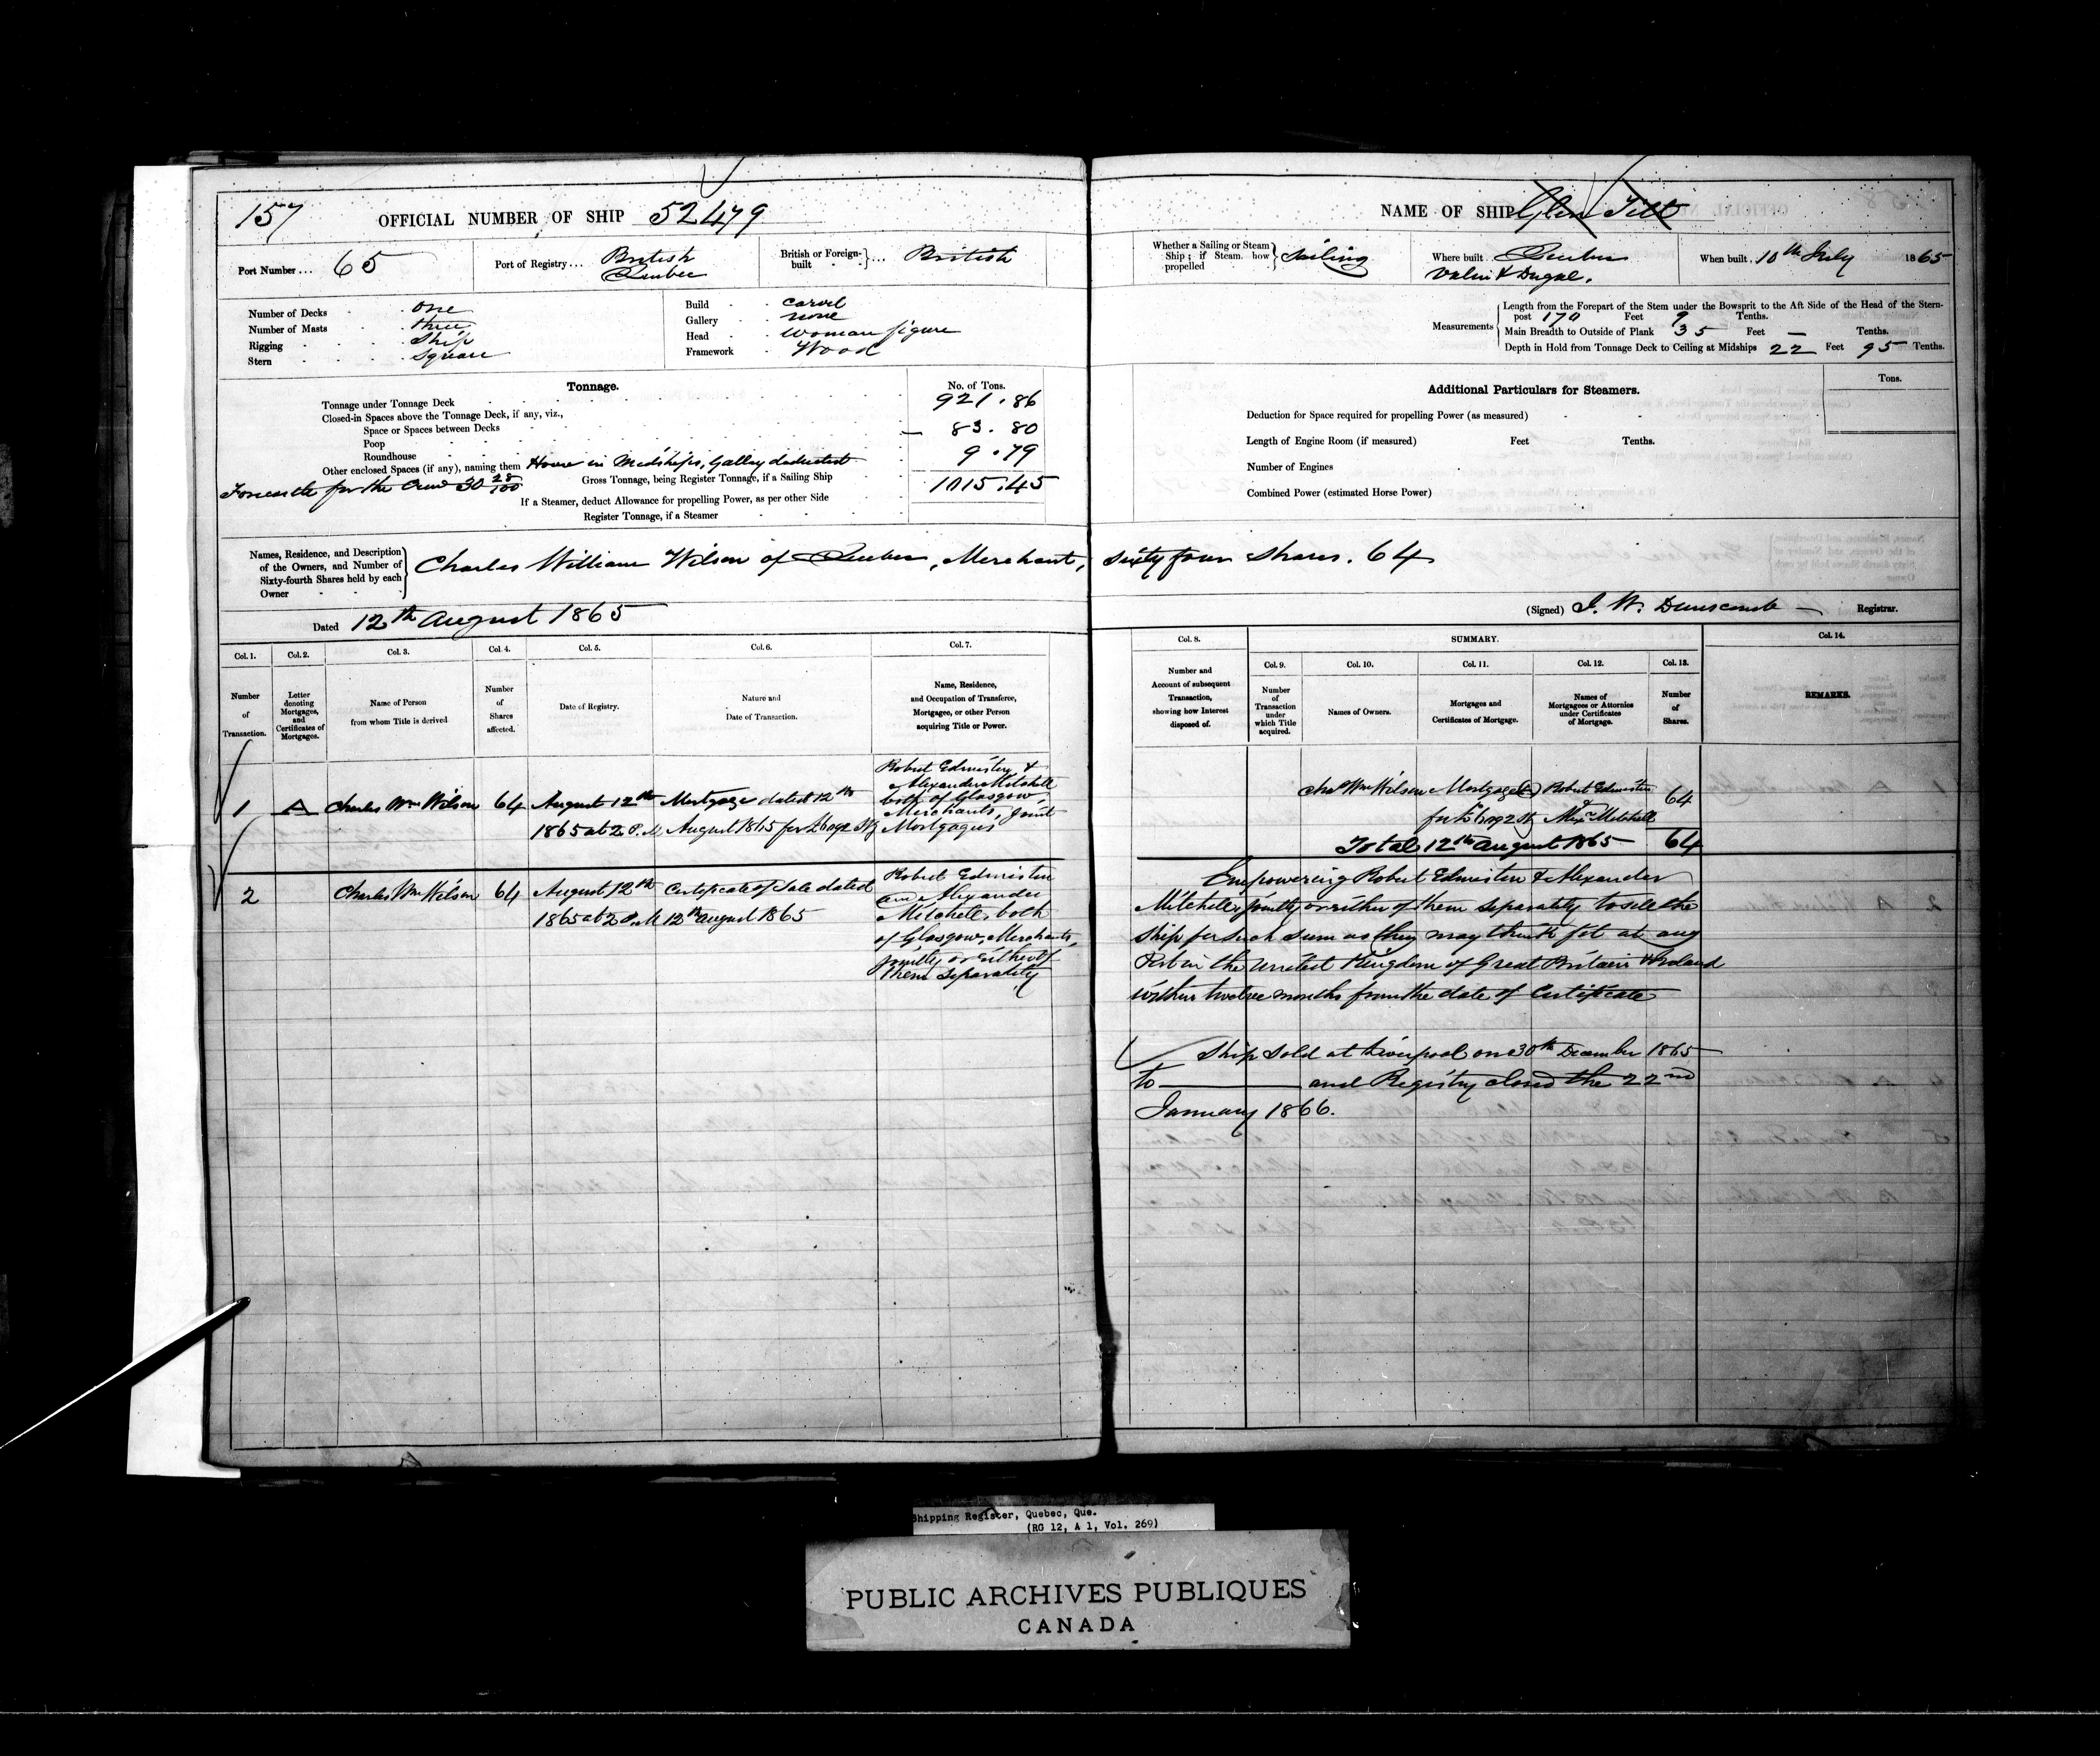 157
OFFICIAL NUMBER OF SHIP 52479
Port Number ... 65
Port of Registry ... British
Quebec
British or Foreign-built ... British
Number of Decks one
Number of Masts three
Rigging Ship
Stern Square
Build carvel
Gallery none
Head woman figure
Framework Wood
Tonnage.
No. of Tons.
Tonnage under Tonnage Deck 921.86
Closed-in Spaces above the Tonnage Deck, if any, viz.,
Space or Spaces between Decks — 83.80
Poop
Roundhouse 9.79
Other enclosed Spaces (if any), naming them House in Midships, Galley deducted
Forecastle for the Crew 30 28/100
Gross Tonnage, being Register Tonnage, if a Sailing Ship 1015.45
If a Steamer, deduct Allowance for propelling Power, as per other Side
Register Tonnage, if a Steamer
Names, Residence, and Description of the Owners, and Number of Sixty-fourth Shares held by each Owner
Charles William Wilson of Quebec, Merchant,
Dated 12th August 1865
Col. 1. Col. 2. Col. 3. Col. 4. Col. 5. Col. 6. Col. 7.
Number of Transaction.
Letter denoting Mortgages, and Certificates of Mortgages.
Name of Person from whom Title is derived
Number of Shares affected.
Date of Registry.
Nature and Date of Transaction.
Name, Residence, and Occupation of Transferee, Mortgagee, or other Person acquiring Title or Power.
1 A Charles Wm Wilson 64 August 12th
1865 at 2 P.M
Mortgage dated 12th
August 1865 for
Robert Edmiston &
Alexander Mitchell
both of Glasgow,
Merchants, Joint
Mortgagees
2 Charles Wm Wilson 64 August 12th
1865 at 2 P.M
Certificate of Sale dated
12th August 1865
Robert Edmiston
and Alexander
Mitchell, both
of Glasgow, Merchants,
jointly or either of
them separately
NAME OF SHIP Glen Tilt
Whether a Sailing or Steam Ship; if Steam, how propelled Sailing
Where built Quebec
Valin & Dugal.
When built 10th July 1865
Measurements
Length from the Forepart of the Stem under the Bowsprit to the Aft Side of the Head of the Stern-
post 170 Feet 9 Tenths.
Main Breadth to Outside of Plank 35 Feet — Tenths.
Depth in Hold from Tonnage Deck to Ceiling at Midships 22 Feet 95 Tenths.
Additional Particulars for Steamers.
Tons.
Deduction for Space required for propelling Power (as measured)
Length of Engine Room (if measured) Feet Tenths.
Number of Engines
Combined Power (estimated Horse Power)
Sixty four shares. 64
(Signed) J. W. Dunscomb Registrar.
Col. 8. SUMMARY. Col. 14.
Col. 9. Col. 10. Col. 11. Col. 12. Col. 13.
Number and Account of subsequent Transaction, showing how Interest disposed of.
Number of Transaction under which Title acquired.
Names of Owners.
Mortgages and Certificates of Mortgage.
Names of Mortgagees or Attornies under Certificates of Mortgage.
Number of Shares.
REMARKS.
Chas Wm Wilson Mortgage (A) Robert Edmiston
& Alexr Mitchell 64
Total 12th August 1865 64
Empowering Robert Edmiston & Alexander
Mitchell, jointly or either of them separately to sell the
Ship for such sum as they may think fit at any
Port in the United Kingdom of Great Britain & Ireland
within twelve months from the date of Certificate
Ship sold at Liverpool on 30th December 1865
to — and Registry closed the 22nd
January 1866.
Shipping Register, Quebec, Que.
(RG 12, A 1, Vol. 269)
PUBLIC ARCHIVES PUBLIQUES
CANADA